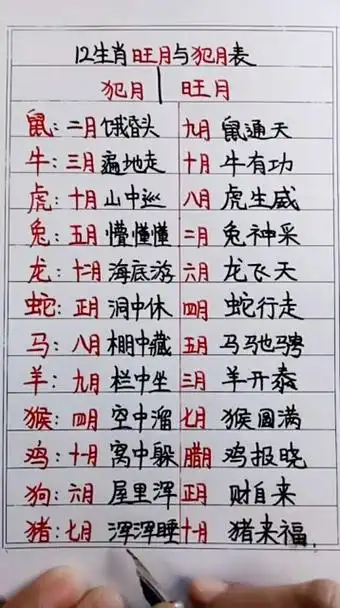 12生肖旺月与犯月表
犯月 旺月
鼠:二月饿昏头 九月鼠通天
牛:三月遍地走 十月牛有功
虎:十月山中巡 八月虎生威
兔:五月懵懂懂 二月兔神采
龙:十二月海底游 六月龙飞天
蛇:正月洞中休 四月蛇行走
马:八月棚中藏 五月马驰骋
羊:九月栏中坐 三月羊开泰
猴:四月空中溜 七月猴圆满
鸡:十月窝中躲 腊月鸡报晓
狗:六月屋里浑 正月财自来
猪:七月浑浑睡 十月猪来福